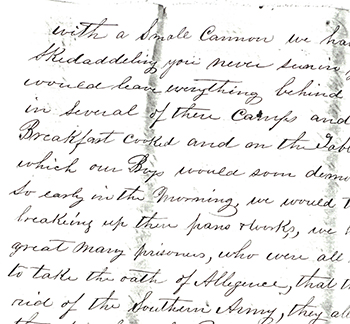 with a Small Cannon we ha
Skedaddeling you never seen
would leave everything behind
in several of there Camps and
Breakfast cooked and on the Tab
which our Boys would soon demo
So early in the Morning, we would t
breaking up there pans &works, we
great many prisoners, who were all
to take the oath of Allegence, that th
rid of the Southern Army, they al